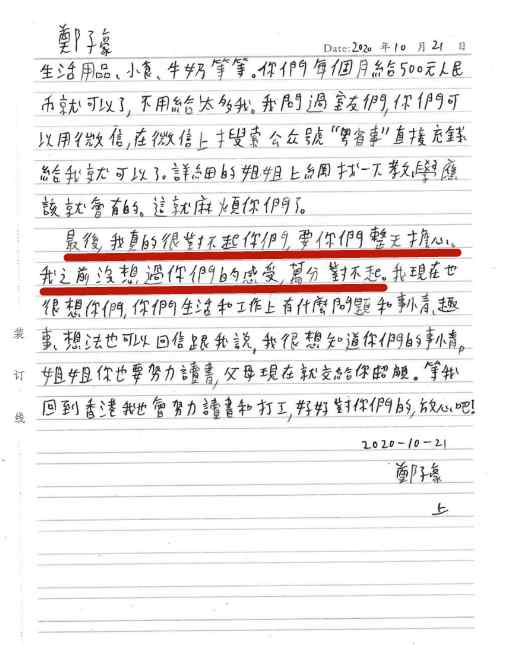 鄭子豪
Date: 2020 年 10 月 21 日
生活用品、小食、牛奶等等。你們每個月給500元人民
币就可以了,不用給太多我。我問過室友們,你們可
以用微信,在微信上搜索公众號“粵省事”直接充錢
給我就可以了。詳細的姐姐上網找一下教學應
該就會有的。這就麻煩你們了。
最後,我真的很對不起你們,要你們整天擔心。
我之前沒想過你們的感受,萬分對不起。我現在也
很想你們,你們生活和工作上有什麼問題和事情、趣
事、想法也可以回信跟我說,我很想知道你們的事情。
姐姐你也要努力讀書,父母現在就交給你照顧。等我
回到香港我也會努力讀書和打工,好好對你們的,放心吧!
2020-10-21
鄭子豪
上
裝
订
线